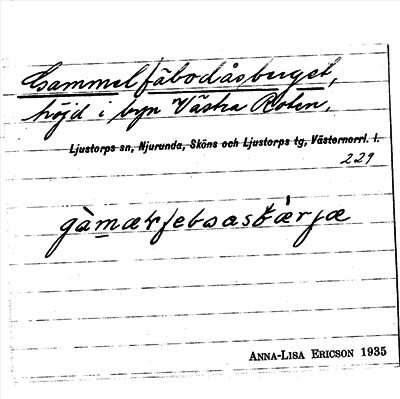 Gammelfäbodåsberget,
höjd i byn Västra Roten.
Ljustorps sn, Njurunda, Sköns och Ljustorps tg, Västernorrl. l.
229
ANNA-LISA ERICSON 1935